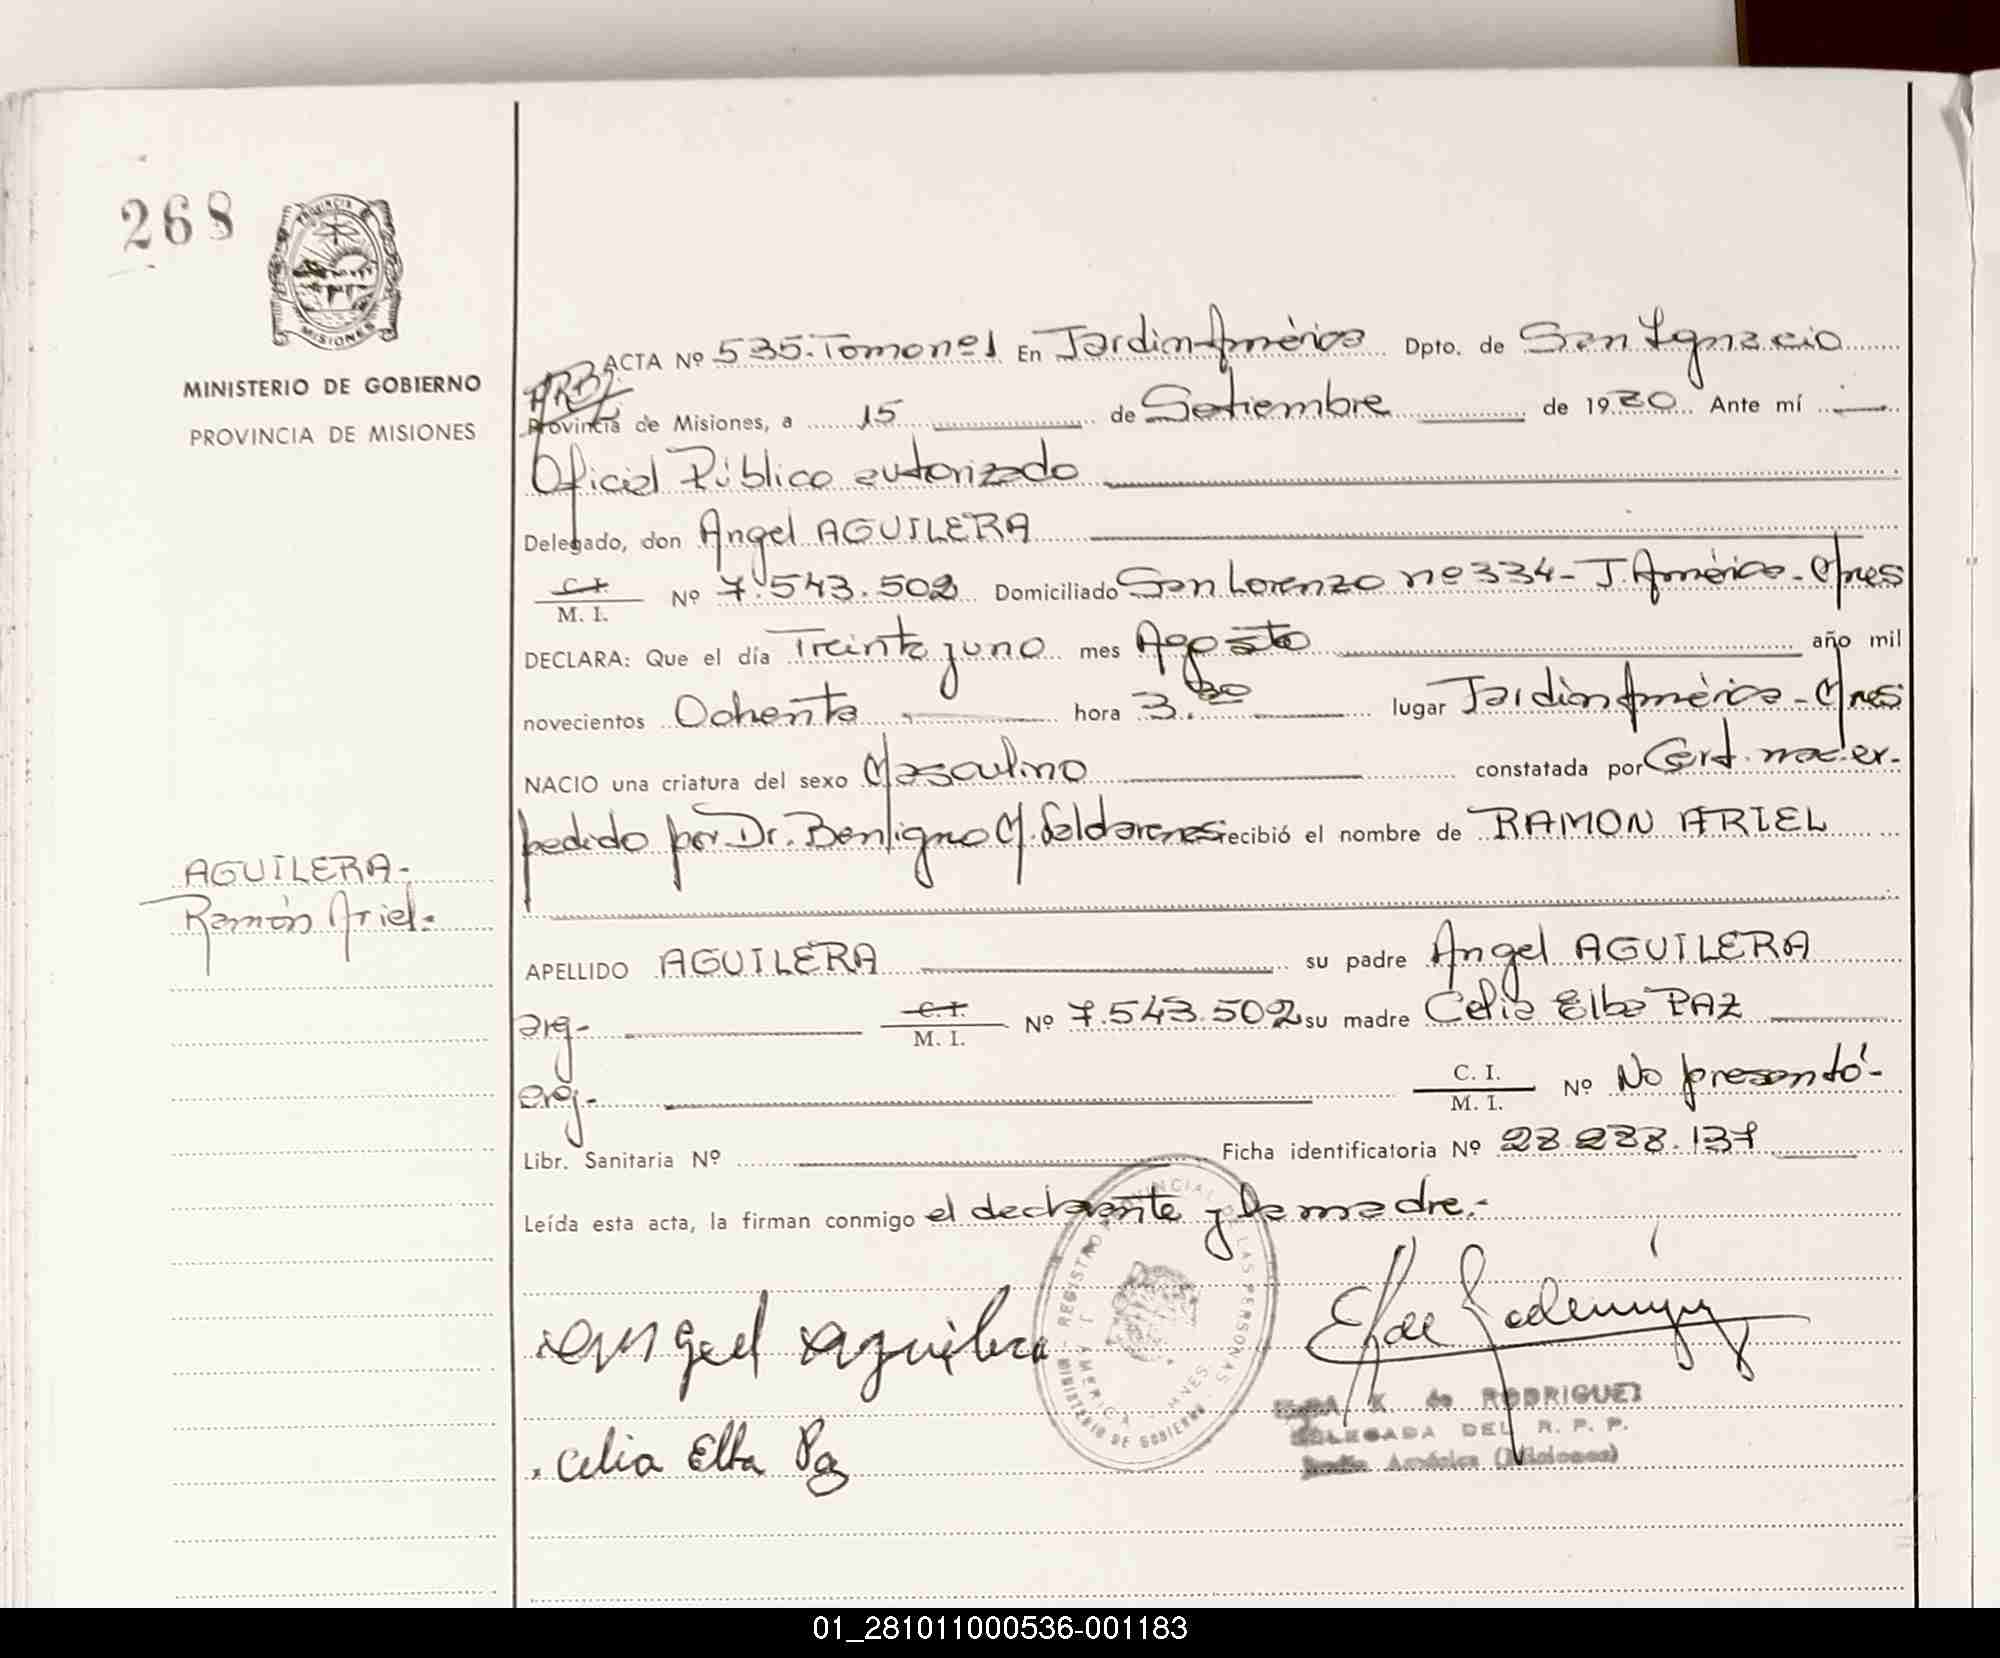 268
PROVINCIA DE
MISIONES
MINISTERIO DE GOBIERNO
PROVINCIA DE MISIONES
ACTA Nº 535. Tomo nº 1 En Jardin América Dpto. de San Ignacio
Provincia de Misiones, a 15 de Setiembre de 1980 Ante mí
Oficial Público autorizado
Delegado, don Angel AGUILERA
C. I.
M. I. Nº 7.543.502 Domiciliado San Lorenzo nº 334 - J. América - Mnes
DECLARA: Que el día Treinta y uno mes Agosto año mil
novecientos Ochenta hora 3.30 lugar Jardin América - Mnes
NACIO una criatura del sexo Masculino constatada por Cert. nac. ex-
pedido por Dr. Benigno M. recibió el nombre de RAMON ARIEL
AGUILERA-
Ramón Ariel.-
APELLIDO AGUILERA su padre Angel AGUILERA
arg- C. I.
M. I. Nº 7.543.502 su madre Celia Elba PAZ
arg- C. I.
M. I. Nº No presentó-
Libr. Sanitaria Nº Ficha identificatoria Nº 28.288.137
Leída esta acta, la firman conmigo el declarante y la madre.-
Angel Aguilera
REGISTRO PROVINCIAL DE LAS PERSONAS
MINISTERIO DE GOBIERNO
J. AMERICA - MNES
K. de RODRIGUEZ
DELEGADA DEL R. P. P.
Jardín América (Misiones)
Celia Elba Paz
01_281011000536-001183